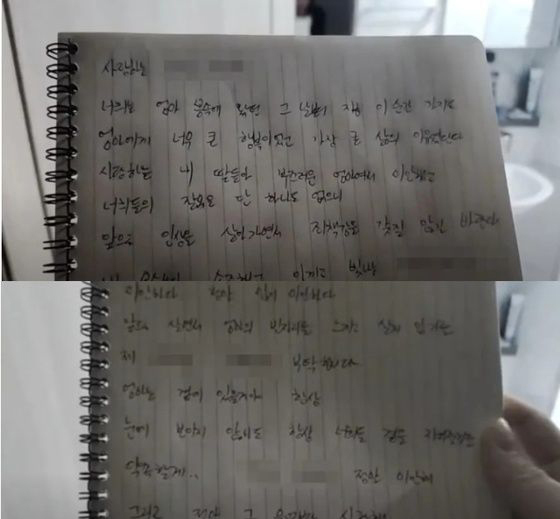 사랑하는
너희는 엄마 몸속에 왔던 그 날부터 지금 이 순간 까지도
엄마에게 너무 큰 행복이었고 가장 큰 삶의 이유였단다
사랑하는 내 딸들아 부끄러운 엄마여서 미안하고
너희들의 잘못은 단 하나도 없으니
앞으로 인생을 살아가면서 죄책감을 갖질 않길 바란다
미안하다 정말 많이 미안하다
앞으로 살면서 엄마의 빈자리를 느끼고 살지 않게
제 부탁합니다
엄마는 곁에 없을지라도 항상
눈에 보이지 않아도 항상 너희들 곁을 지켜준다고
약속할게.. 정말 미안해
그리고 정말